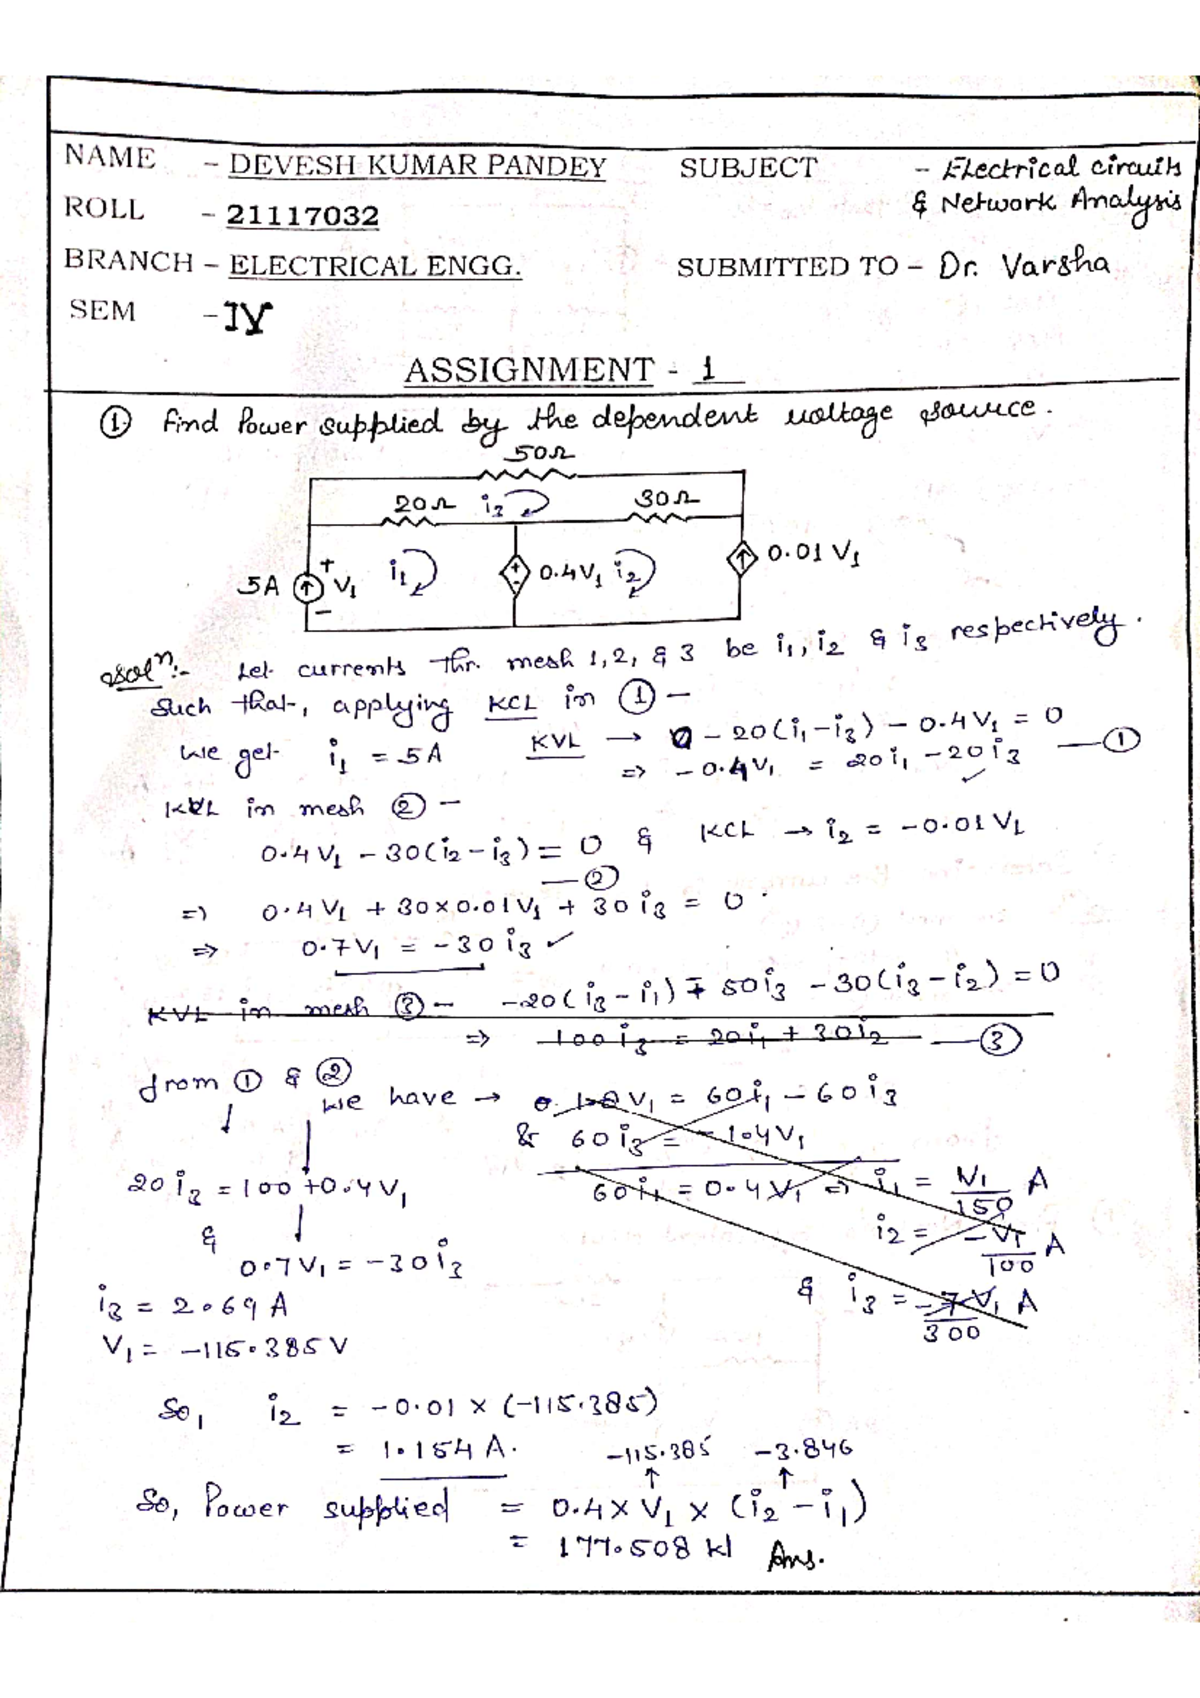 NAME - DEVESH KUMAR PANDEY SUBJECT - Electrical circuits
& Network Analysis
ROLL - 21117032
BRANCH - ELECTRICAL ENGG. SUBMITTED TO - Dr. Varsha
SEM - IV
ASSIGNMENT - 1
① Find Power supplied by the dependent voltage source.
50Ω
20Ω i3 30Ω
5A + V1 - i1 + - 0.4V1 i2 0.01 V1
Solⁿ:- Let currents thr. mesh 1, 2, & 3 be i1, i2 & i3 respectively.
Such that, applying KCL in ① -
We get i1 = 5A KVL → 0 - 20(i1 - i3) - 0.4V1 = 0
⇒ - 0.4V1 = 20i1 - 20i3 — ①
KVL in mesh ② -
0.4V1 - 30(i2 - i3) = 0 & KCL → i2 = -0.01V1
— ②
⇒ 0.4V1 + 30×0.01V1 + 30i3 = 0
⇒ 0.7V1 = -30i3 ✓
KVL in mesh ③ - -20(i3 - i1) - 50i3 - 30(i3 - i2) = 0
⇒ 100i3 = 20i1 + 30i2 — ③
from ① & ②
we have → V1 = 60i1 - 60i3
& 60i3 = -1.4V1
20i3 = 100 + 0.4V1 60i1 = 0.4V1 ⇒ i1 = V1/150 A
& i2 = -V1/100 A
0.7V1 = -30i3
i3 = 2.69 A & i3 = -7V1/300 A
V1 = -115.385 V
So, i2 = -0.01 × (-115.385)
= 1.154 A. -115.385 -3.846
So, Power supplied = 0.4 × V1 × (i2 - i1)
= 177.508 W Ans.